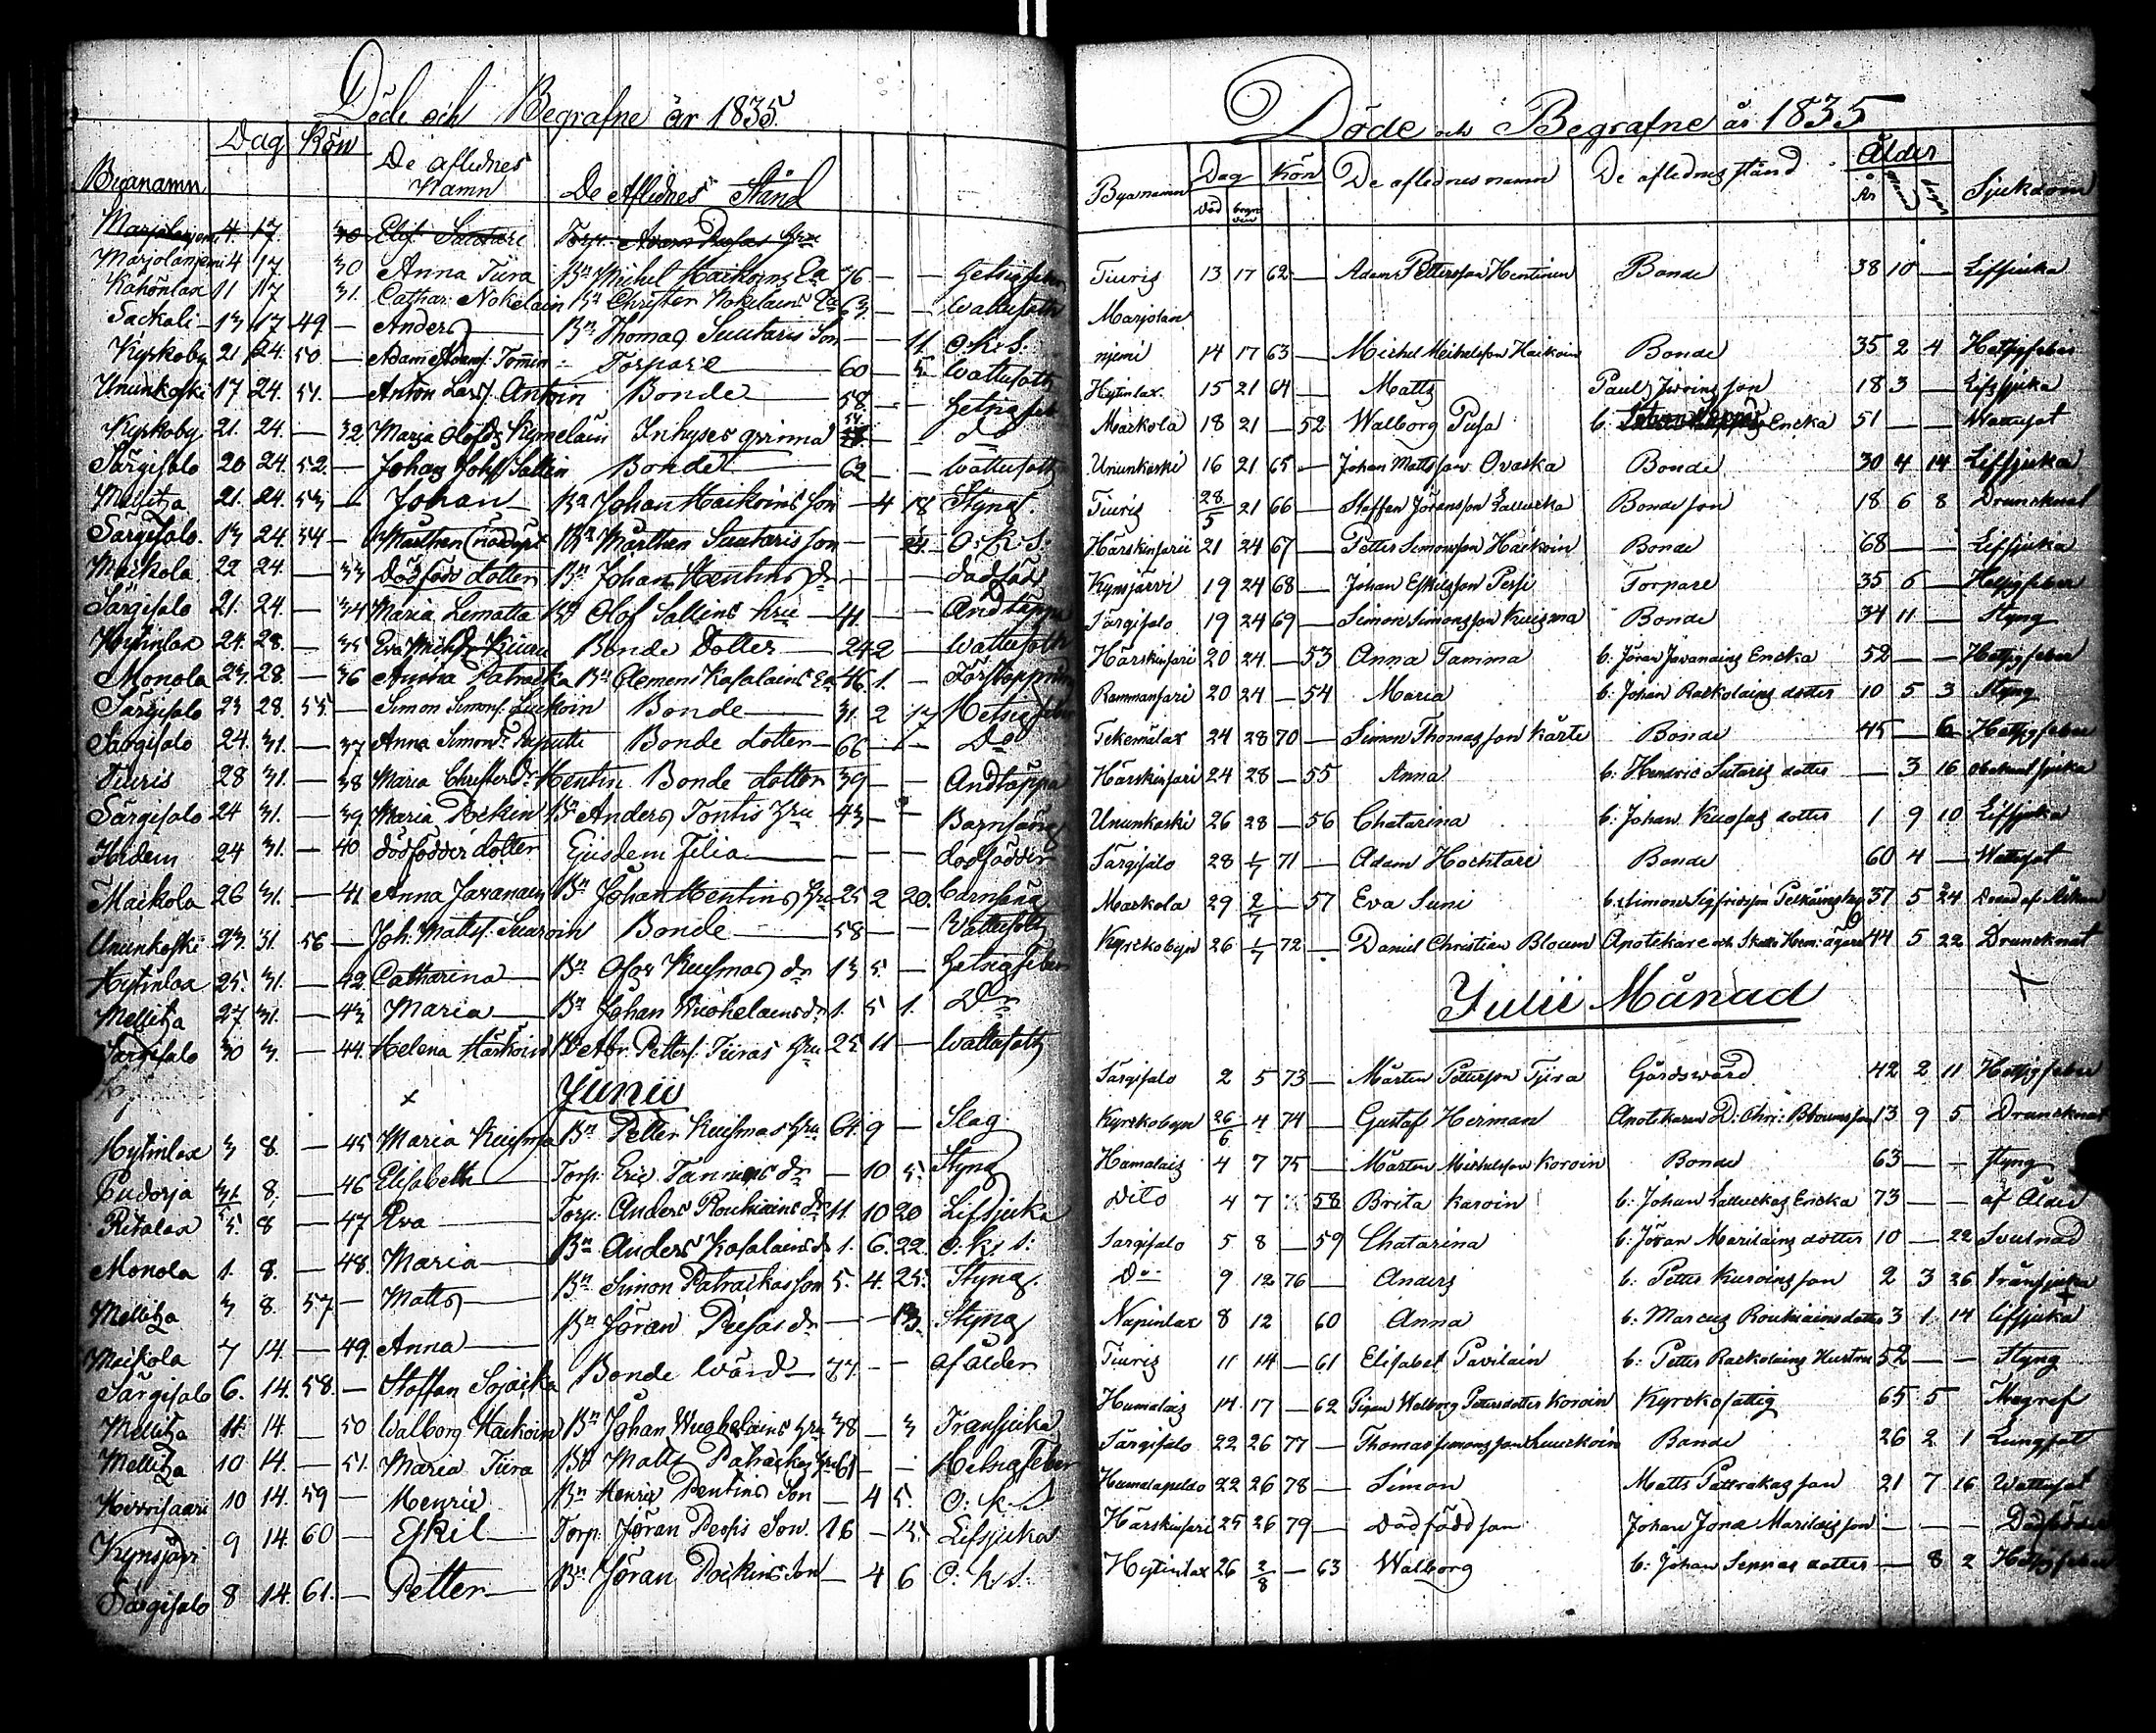 Döde och Begrafne år 1835.
Dag Kön
Byanamn De aflidnes Namn De Aflidnes Stånd
Marjolanjemi 4. 17. 30 Elis. Suutari Torp.
Marjolanjemi 4 17. 30 Anna Tiira Bn Michel Haikoins Ea 76 — — Hetsigfeber
Kohonlax 11 17 31. Cathar. Nokelain Bn Christer Nokelains Ea 63 — — Wattusoth
Sackali 13 17 49 — Anders Bn Thomas Suutaris Son — — 11 O.k.S.
Kyrkoby 21 24. 50 — Adam Adamss. Tomin Torpare 60 — 5. Wattusoth
Ununkoski 17 24. 51. — Anton Larss. Antoin Bonde 58 — — Hetsigfeb
Kyrkoby 21. 24. — 32 Marja Olofdr Kymelain Inhyses qvinna 54 — do
Särgisalo 20 24. 52. — Johan Johss Sallin Bonde 62 — — Wattusoth
Mellitza 21. 24. 53 — Johan Bn Johan Haikoins Son — 4 18 Styng.
Särgisalo. 13 24. 54 — Mårthen (nöddöpt Bn Mårthen Suutaris Son — — 21. O:k:S:
Maikola 22 24. — 33 Dödfödd dotter Bn Johan Hentins dr — — — dödfödd
Särgisalo 21. 24. — 34 Maria Lematta Bn Olof Sallins hru 41. — — Andtäppa
Hytinlax 24. 28. — 35 Eva Michdr Kiuru Bonde Dotter 24 2 — Wattusoth
Monola 23. 28. — 36 Anna Patracka Bn Clemens Kasalains Ea 46 1. — Förstoppning
Särgisalo 23 28. 55. — Simon Simonss. Luckoin Bonde 31. 2 17 Hetsigfeber
Särgisalo 24. 31. — 37 Anna Simonsdr Raputti Bonde dotter 66 — — Do
Tiuris 28 31. — 38 Maria Christerdr Hentin Bonde dotter 39 — — Andtäppa
Särgisalo 24 31. — 39 Maria Pöckin Bn Anders Tontis Hru 43 — — Barnsäng
Ibidem 24 31. — 40 dödfödder dotter Ejusdem filia — — — dödfödder
Maikola 26 31. — 41. Anna Javanain Bn Johan Hentins Hru 25 2 20. Barnsäng
Ununkoski 23. 31. 56 — Joh. Mattss. Suaroin Bonde 58 — — Wattusoth
Hytinlax 25. 31. — 42 Catharina Bn Kuismas dr 13 5. — Hetsigfeber
Mellitza 27 31. — 43 Maria Bn Johan Wuohelains dr 1. 5 1. Do
Särgisalo 30 3. — 44. Helena Härkoin Bn Abr. Petterss. Tiiras Hru 25 11 — Wattusoth
Junii
Hytinlax 3 8. — 45 Maria Kuisma Bn Petter Kuismas Hru 64. 9 — Slag
Pudorja 31/5 8. — 46 Elisabeth Torp. Eric Tannins dr — 10 5. Styng
Ritolax 5. 8 — 47 Eva Torp. Anders Rouhiains dr 11. 10 20 Lifsjuka
Monola 1. 8. — 48. Maria Bn Anders Kasalains dr 1. 6. 22. O:k:S:
Mellitza 3 8. 57 — Matts Bn Simon Patrackas Son 5. 4. 25. Styng.
Maikola 7 14. — 49. Anna Bn Jöran Pusas dr — — 13. Styng
Särgisalo 6. 14. 58. — Staffan Sojacka Bonde Wärd 77. — — af ålder
Mellitza 11. 14. — 50 Walborg Haikoin Bn Johan Wuohelains Hru 38 — 3 Transjuka
Mellitza 10 14. — 51. Maria Tiira Bn Matts Patrackas Hru 61 — — Hetsigfeber
10 14. 59 — Henric Bn Henric Pentins Son — 4 5. O:k:S
Kynsjärvi 9 14. 60 — Eskil Torp. Jöran Peosis Son 16 — 15. Lifsjuka
Särgisalo 8 14. 61. — Petter Bn Jöran Pöckins Son — 4 6 O:k:S:
Döde och Begrafne år 1835
Byanamn Dag Kön De aflednes namn De aflednes stånd Ålder Sjukdom
Död begr. År
Tiuris 13 17 62 — Adam Pettersson Hentinen Bonde 38 10 — Lifsjuka
Marjolan
njemi 14 17 63 — Michel Michelsson Haikoin Bonde 35 2 4 Hetsigfeber
Hytinlax. 15 21 64 — Matts Pauls son 18 3 — Lifsjuka
Maikola 18 21 — 52 Walborg Pusa b: Encka 51 — — Wattusot
Ununkoski 16 21 65 — Johan Mattsson Ovaska Bonde 30 4 14 Lifsjuka
Tiuris 28/5 21 66 — Staffan Jöransson Lallucka Bonde son 18 6 8 Druncknat
Härskinsarii 21 24 67 — Petter Simonsson Häckoin Bonde 68 — — Lifsjuka
Kynsjärvi 19 24 68 — Johan Eskilsson Torpare 35 6 — Hetsigfeber
Särgisalo 19 24 69 — Simon Simonsson Kuisma Bonde 34 11 — Styng
Härskinsari 20 24 — 53 Anna Tamma b: Jöran Javanains Encka 52 — — Hetsigfeber
Rammansari 20 24 — 54 Maria b: Johan Rackolains dotter 10 5 3 Styng
Tekemälax 24 28 70 — Simon Thomasson Kärte Bonde 45 — 6 Hetsigfeber
Härskinsari 24 28 — 55 Anna b: Hendric Sutaris dotter — 3 16 obekant sjuka
Ununkoski 26 28 — 56 Chatarina b: Johan Kuosas dotter 1 9 10 Lifsjuka
Särgisalo 28 1/7 71 — Adam Hochtari Bonde 60 4 — Wattusot
Maikola 29 2/7 — 57 Eva Suni b: Simon Sigfridsson 37 5 24
Kyrckobyn 26 1/7 72 — Daniel Christian Bloum Apotekare och ägare 44 5 22 Druncknat
Julii Månad
Särgisalo 2 5 73 — Mårten Pettersson Tjira Gårdswärd 42 2 11 Hetsigfeber
Kyrckobyn 26/6 4 74 — Gustaf Herman Apotekaren D: Chri: Bloums son 13 9 5 Druncknat
Hamalais 4 7 75 — Mårten Michelsson Koroin Bonde 63 — — Styng
Dito 4 7 58 Brita Karoin b: Johan Lalluckas Encka 73 — — af Ålder
Särgisalo 5 8 — 59 Chatarina b: Jöran Marilains dotter 10 — 22 Svulnad
Do 9 12 76 — Anders b: Petter Kuroins son 2 3 26 Transjuka
Napinlax 8 12 60 Anna b: Marcus Rouhiains dotter 3 1 14 Lifsjuka
Tiuris 11 14 — 61 Elisabet Pavilain b: Petter Rackolains Hustru 52 — — Styng
Humalais 14 17 — 62 Pigan Walborg Pettersdotter Koroin Kyrckofattig 65 5 Magref
Särgisalo 22 26 77 — Thomas Simonsson Luuckoin Bonde 26 2 1 Lungsot
22 26 78 — Simon Matts Pattrakas son 21 7 16 Wattusot
Härskinsari 25 26 79 — Dödfödd son Johan Jöns Marilais son — — — Dödfödd
Hytinlax 26 2/8 — 63 Walborg b: Johan Seppas dotter — 8 2 Hetsigfeber